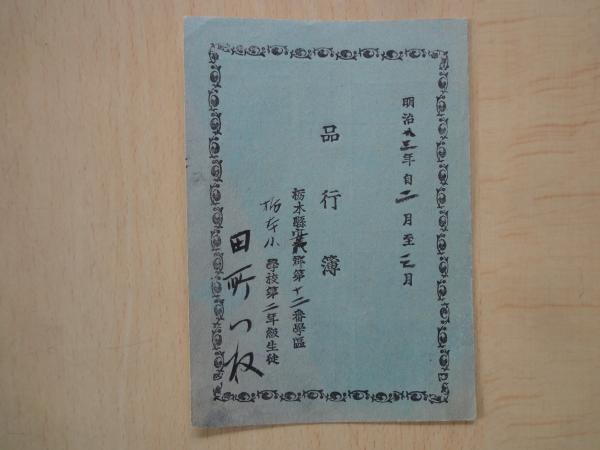 明治廿三年自二月至三月
品行簿
栃木縣安蘇郡第十二番學區
栃本小學校第二年級生徒
田所